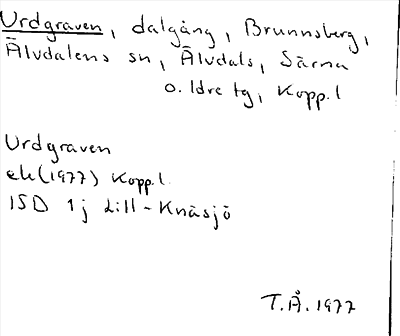 Urdgraven, dalgång, Brunnsberg,
Älvdalens sn, Älvdals, Särna
o. Idre tg, Kopp. l
Urdgraven
ek (1977) Kopp. l.
15D 1j Lill-Knäsjö
T.Å. 1977